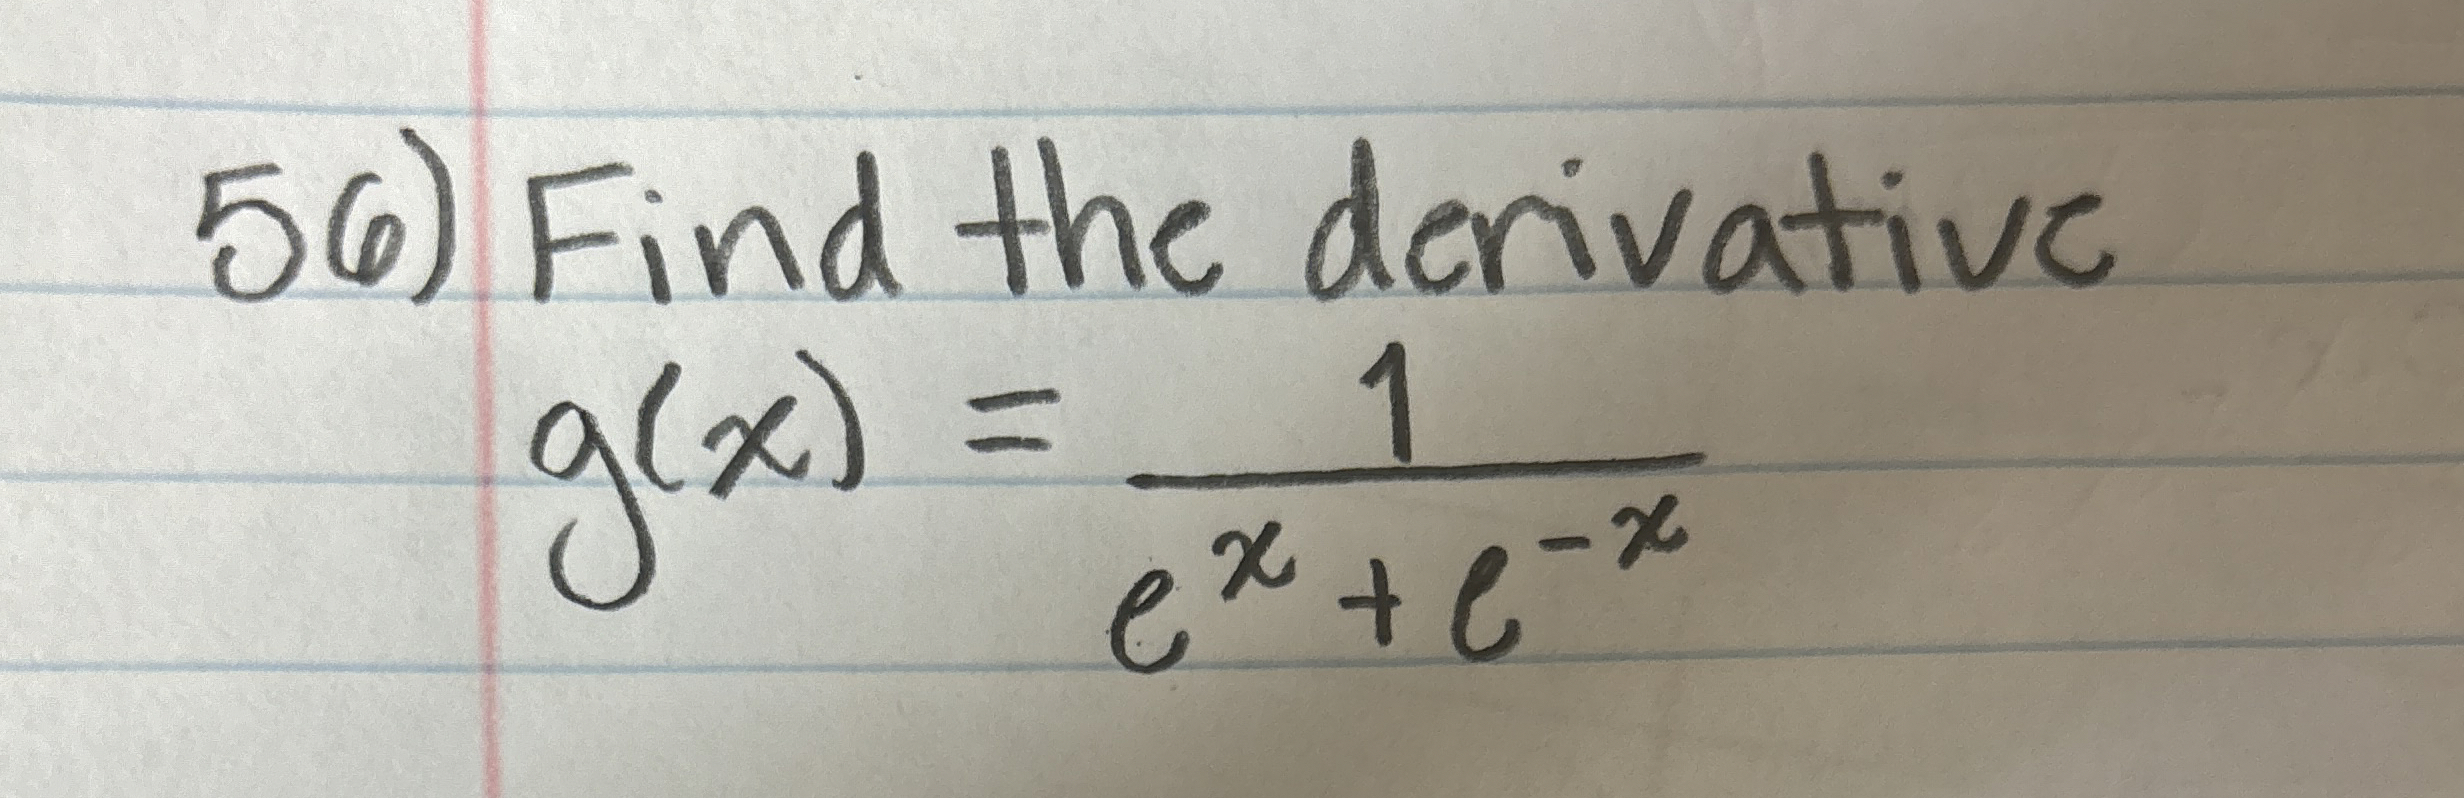 56) Find the derivative
g(x) = 1 / (e^x + e^-x)